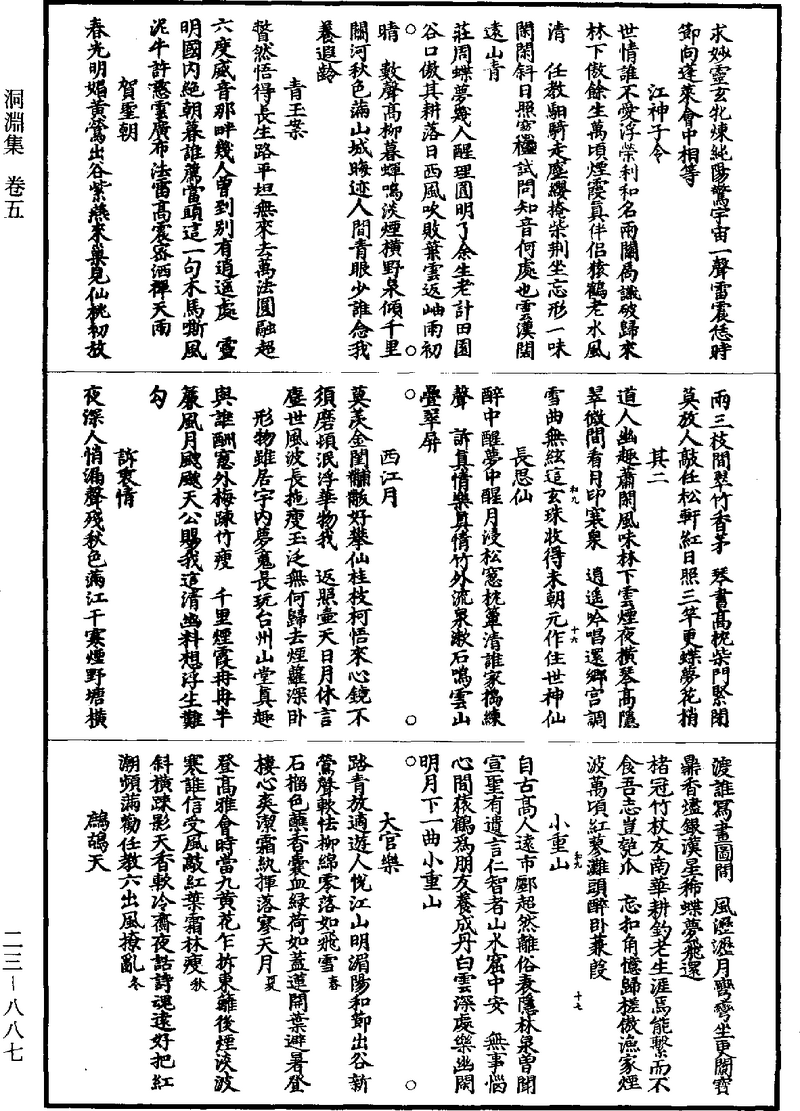 求妙靈玄牝煉純陽驚宇宙一聲雷震恁時
節向蓬萊會中相等
江神子令
世情誰不愛浮榮利和名兩關扃識破歸來
林下傲餘生萬頃煙霞真伴侶猿鶴老水風
清　任教駟騎走塵纓掩柴荆坐忘形一味
閑閑斜日照窗櫺試問知音何處也雲漢闊
遠山青
莊周蝶夢幾人醒理圓明了余生老計田園
谷口傲其耕落日西風吹敗葉雲返岫雨初
晴　數聲高柳暮蟬鳴淡煙横野泉傾千里
關河秋色滿山城晦迹人間青眼少誰念我
養遐齡
青玉案
瞥然悟得長生路平坦無來去萬法圓融超
六度威音那畔幾人曾到别有逍遥處　靈
明國内絶朝暮誰薦當頭這一句木馬嘶風
泥牛許慈雲廣布法雷高震密洒禪天雨
賀聖朝
春光明媚黄鶯出谷紫燕來巢見仙桃初放
兩三枝間翠竹香茅　琴書高枕柴門緊閉
莫放人敲任松軒紅日照三竿更蝶夢花梢
其二
道人幽趣蕭閑風味林下雲煙夜横琴高隱
翠微間看月印寒泉　逍遥吟唱還鄉宫調
雪曲無絃這玄珠收得未朝元作住世神仙
長思仙
醉中醒夢中醒月浸松窗枕簟清誰家搗練
聲　訴真情樂真情竹外流泉漱石鳴雲山
疊翠屏
西江月
莫羡金閨黼黻好攀仙桂枝柯悟來心鏡不
須磨頓泯浮華物我　返照壺天日月休言
塵世風波長拖瘦玉泛無何歸去煙蘿深卧
形物雖居宇内夢魂長玩台州山堂真趣
與誰酬窗外梅踈竹瘦　千里煙霞冉冉半
簾風月颼颼天公賜我這清幽料想浮生難
勾
訴衷情
夜深人悄漏聲殘秋色滿江干寒煙野塘横
渡誰寫畫圖間　風瀝瀝月彎彎坐更闌寶
鼎香燼銀漢星稀蝶夢飛還
楮冠竹杖友南華耕釣老生涯焉能繫而不
食吾志豈匏瓜　忘扣角憶歸槎傲漁家煙
波萬頃紅蓼灘頭醉卧蒹葭
小重山
自古高人遠市鄽超然離俗表隱林泉曾聞
宣聖有遺言仁智者山水窟中安　無事惱
心間猿鶴爲朋友養成丹白雲深處樂幽閑
明月下一曲小重山
大官樂
踏青放適遊人悦江山明湄陽和節出谷新
鶯聲軟怯柳綿零落如飛雪春
石榴色蘸香囊血緑荷如蓋蓮開葉避暑登
樓心爽潔霜紈揮落寒天月夏
登高雅會時當九黄花乍拆東籬後煙淡波
寒誰信受風敲紅葉霜林瘦秋
斜横踈影天香軟冷齋夜話詩魂遠好把紅
潮頻滿勸任教六出風撩亂冬
鷓鴣天
洞淵集　卷五
二三—八八七